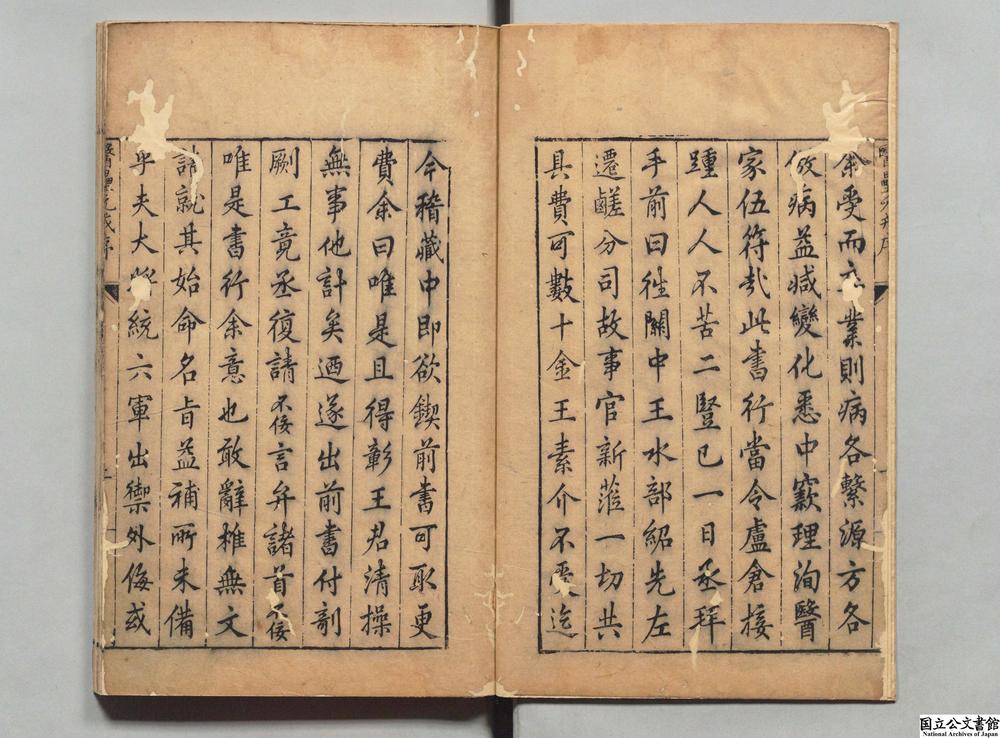 余受而卒業則病各繫源方各
倣病益㓕變化悉中窾理洵醫
家伍符㢤此書行當令盧倉接
踵人人不苦二豎已一日丞拜
手前曰徃關中王水部紹先左
遷鹺分司故事官新蒞一切共
具費可數十金王素介不受迄
今稽藏中即欲鍥前書可取更
費余曰唯是且得彰王君清操
無事他計矣迺遂出前書付剞
劂工竟丞復請不佞言弁諸首不佞
唯是書行余意也敢辭椎無文
請就其始命名旨益補所未備
乎夫大將統六軍出禦外侮或
国立公文書館
National Archives of Japan